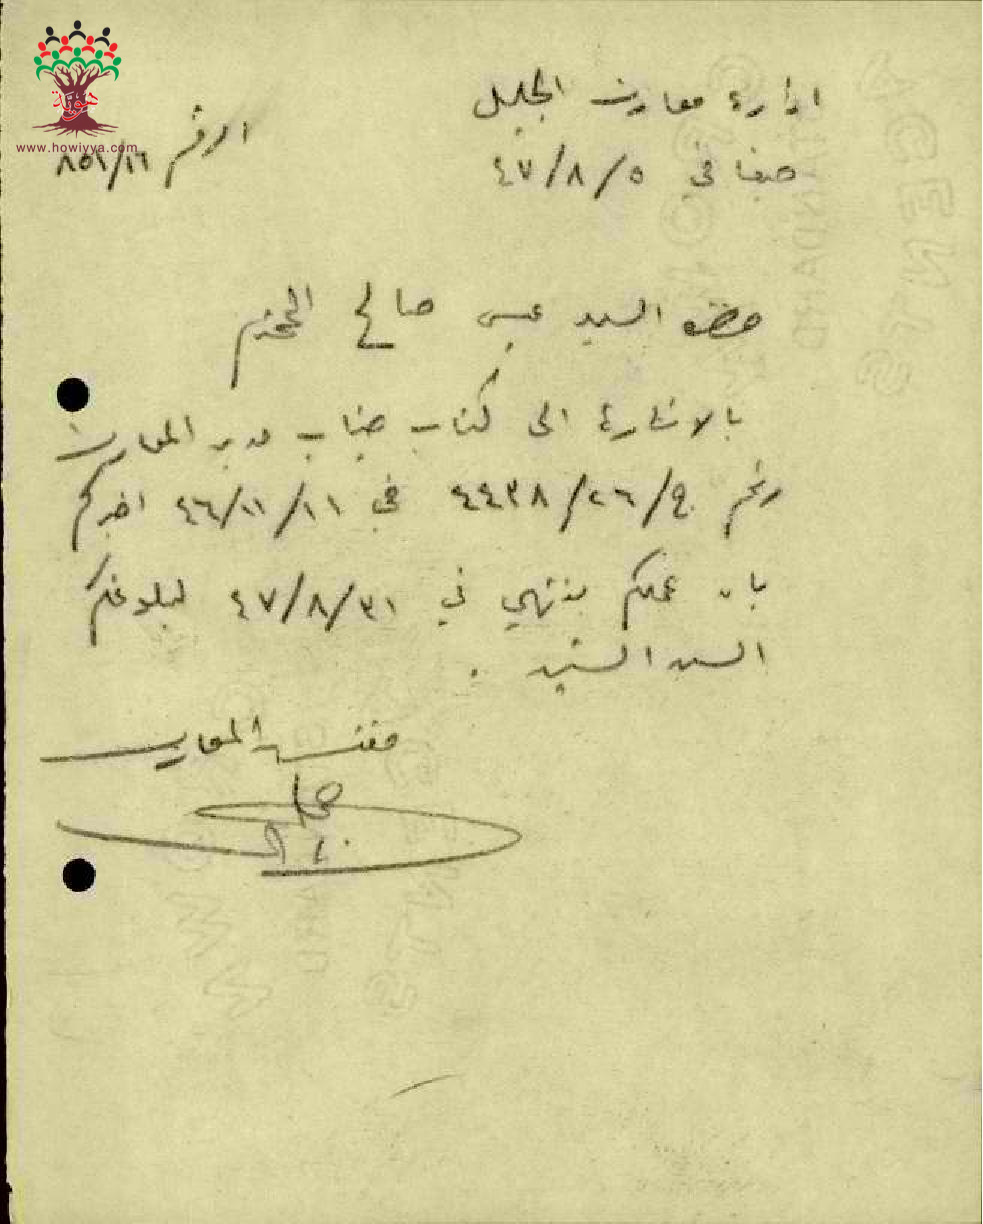 هوية
www.howiyya.com
ادارة معارف الجليل
الرقم ٨٥١/١٦
حيفا في ٤٧/٨/٥
حضرة السيد عيسى صالح المحترم
بالاشارة الى كتاب جناب مدير المعارف
رقم ج/٢٦/٤٤٣٨ في ٤٦/١١/١١ اخبركم
بان عملكم ينتهي في ٤٧/٨/٣١ لبلوغكم
السن الستين .
مفتش المعارف